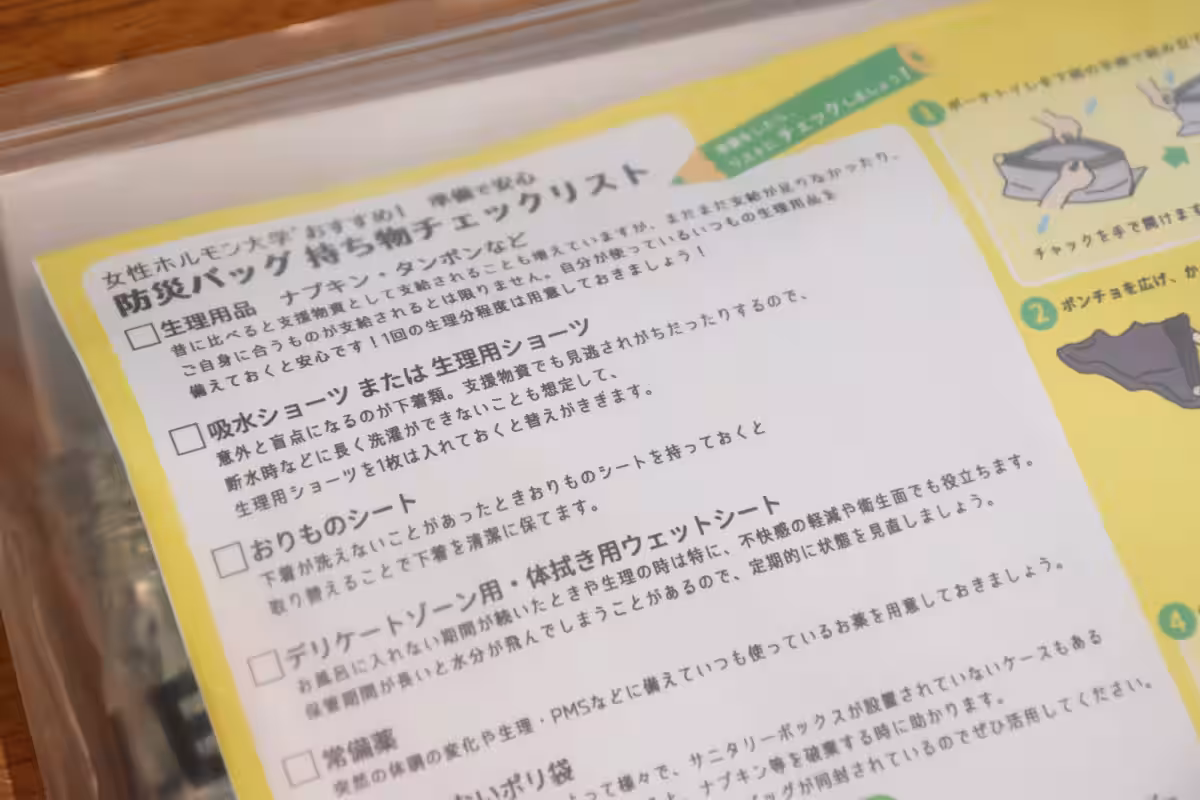 女性ホルモン大学 おすすめ! 準備で安心
防災バッグ 持ち物チェックリスト
リストに チェックしましょう!
生理用品 ナプキン・タンポンなど
昔に比べると支援物資として支給されることも増えていますが、まだまだ支給が足りなかったり、
ご自身に合うものが支給されるとは限りません。自分が使っているいつもの生理用品を
備えておくと安心です!1回の生理分程度は用意しておきましょう!
吸水ショーツ または 生理用ショーツ
意外と盲点になるのが下着類。支援物資でも見逃されがちだったりするので、
断水時などに長く洗濯ができないことも想定して、
生理用ショーツを1枚は入れておくと替えがききます。
おりものシート
下着が洗えないことがあったときおりものシートを持っておくと
取り替えることで下着を清潔に保てます。
デリケートゾーン用・体拭き用ウェットシート
お風呂に入れない期間が続いたときや生理の時は特に、不快感の軽減や衛生面でも役立ちます。
保管期間が長いと水分が飛んでしまうことがあるので、定期的に状態を見直しましょう。
常備薬
突然の体調の変化や生理・PMSなどに備えていつも使っているお薬を用意しておきましょう。
ないポリ袋
よって様々で、サニタリーボックスが設置されていないケースもある
ナプキン等を破棄する時に助かります。
バッグが同封されているのでぜひ活用してください。
1
チャックを手で開けます
2 ポンチョを広げ、か
4